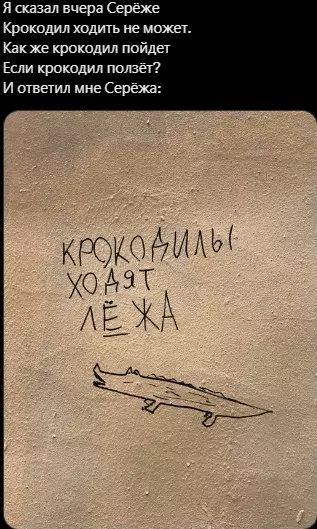 Я сказал вчера Серёже
Крокодил ходить не может.
Как же крокодил пойдет
Если крокодил ползёт?
И ответил мне Серёжа:
КРОКОДИЛЫ
ХОДЯТ
ЛЁЖА